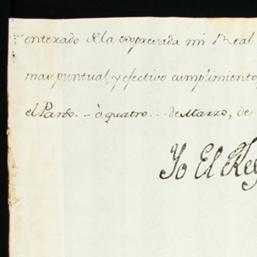 enterado de la expresada mi Real
mas puntual, y efectivo cumplimiento
el Pardo à quatro de Marzo, de
Yo El Rey